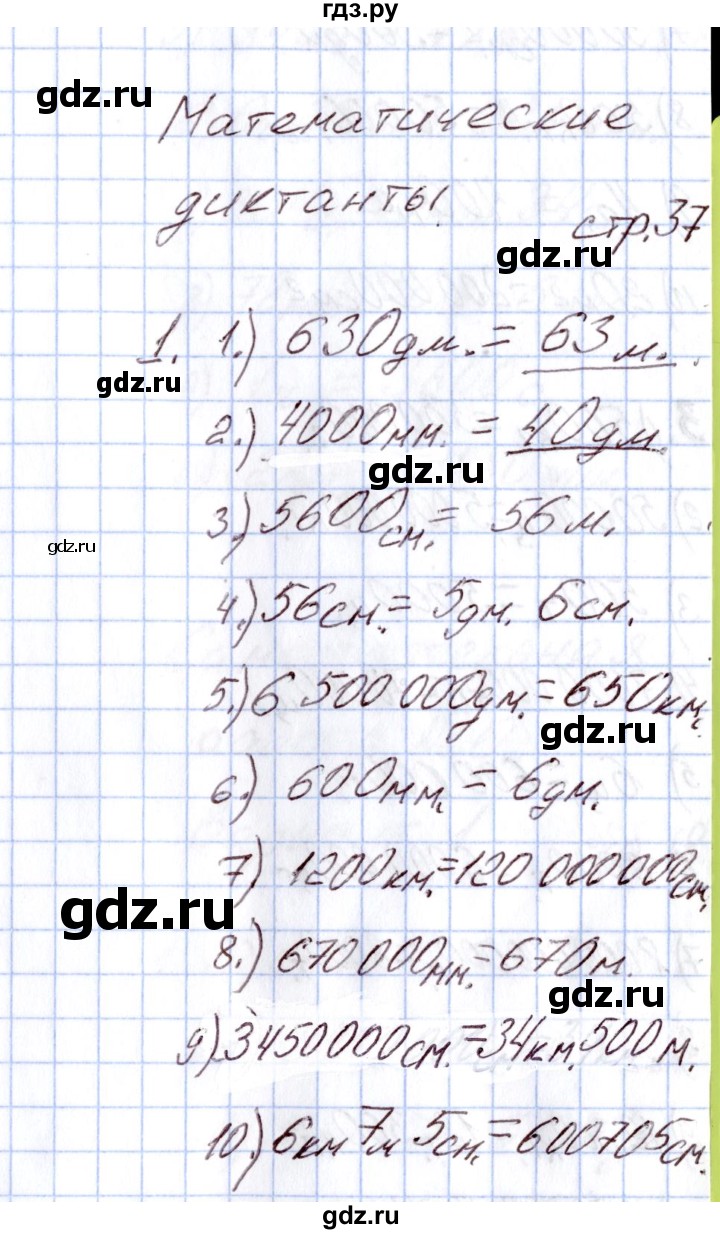 гдз.ру
gdz.ru
Математические
диктанты
стр.37
gdz.ru
1. 1.) 630дм. = 63м.
gdz.ru
2.) 4000мм. = 40дм.
gdz.ru
3.) 5600см. = 56м.
gdz.ru
4.) 56см. = 5дм. 6см.
5.) 6 500 000дм. = 650км.
gdz.ru
6.) 600мм. = 6дм.
7) 1200км. = 120 000 000см.
gdz.ru
8.) 670 000мм. = 670м.
gdz.ru
9) 3450000см. = 34км. 500м.
10.) 6км 7м 5см. = 600705см.
gdz.ru